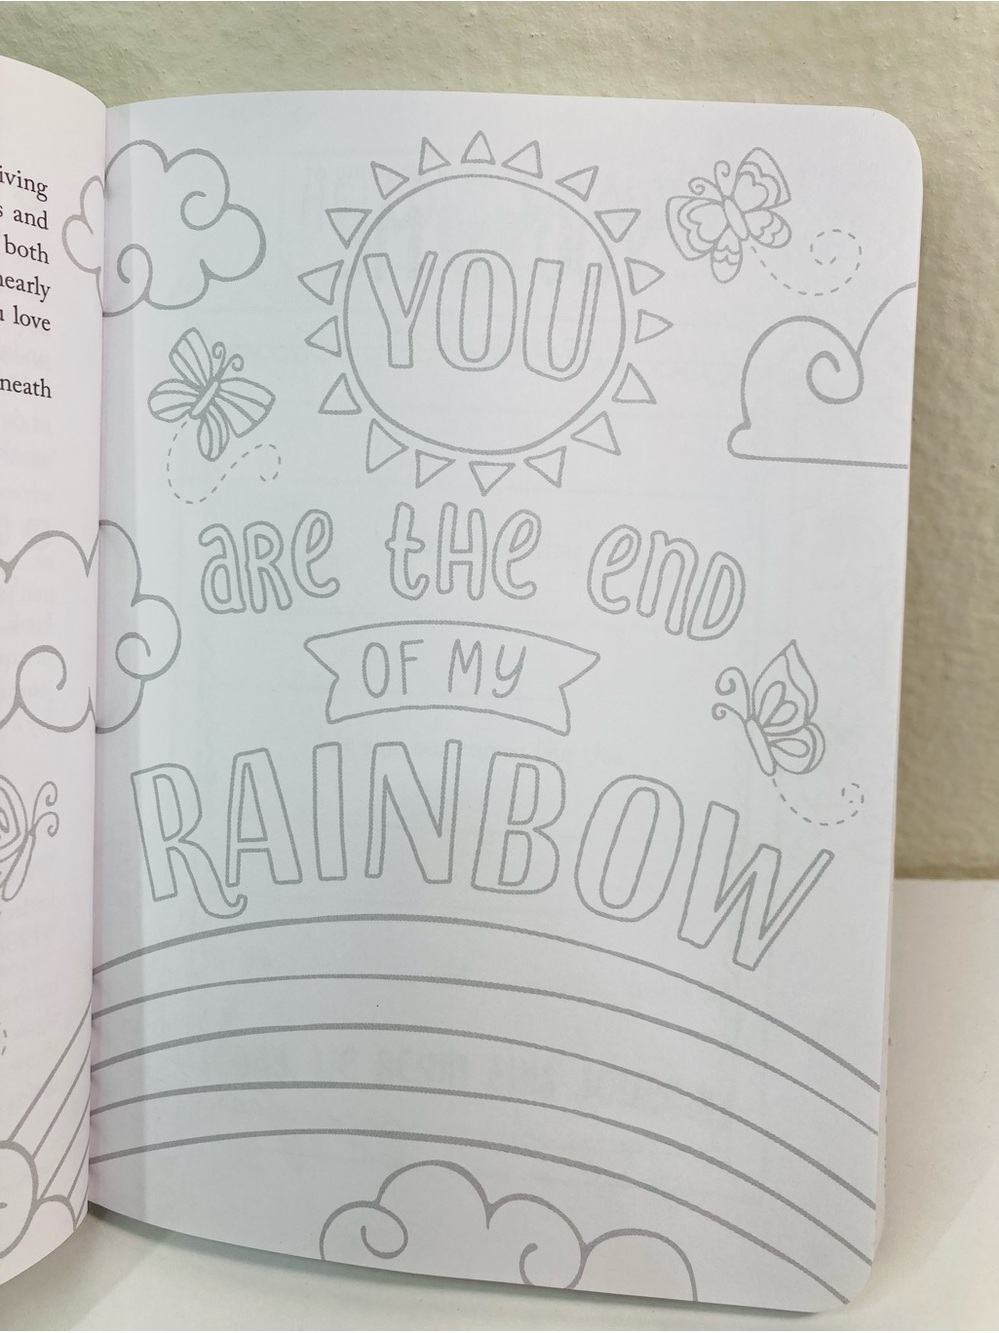 iving
s and
both
nearly
u love
neath
YOU
are the end
OF MY
RAINBOW